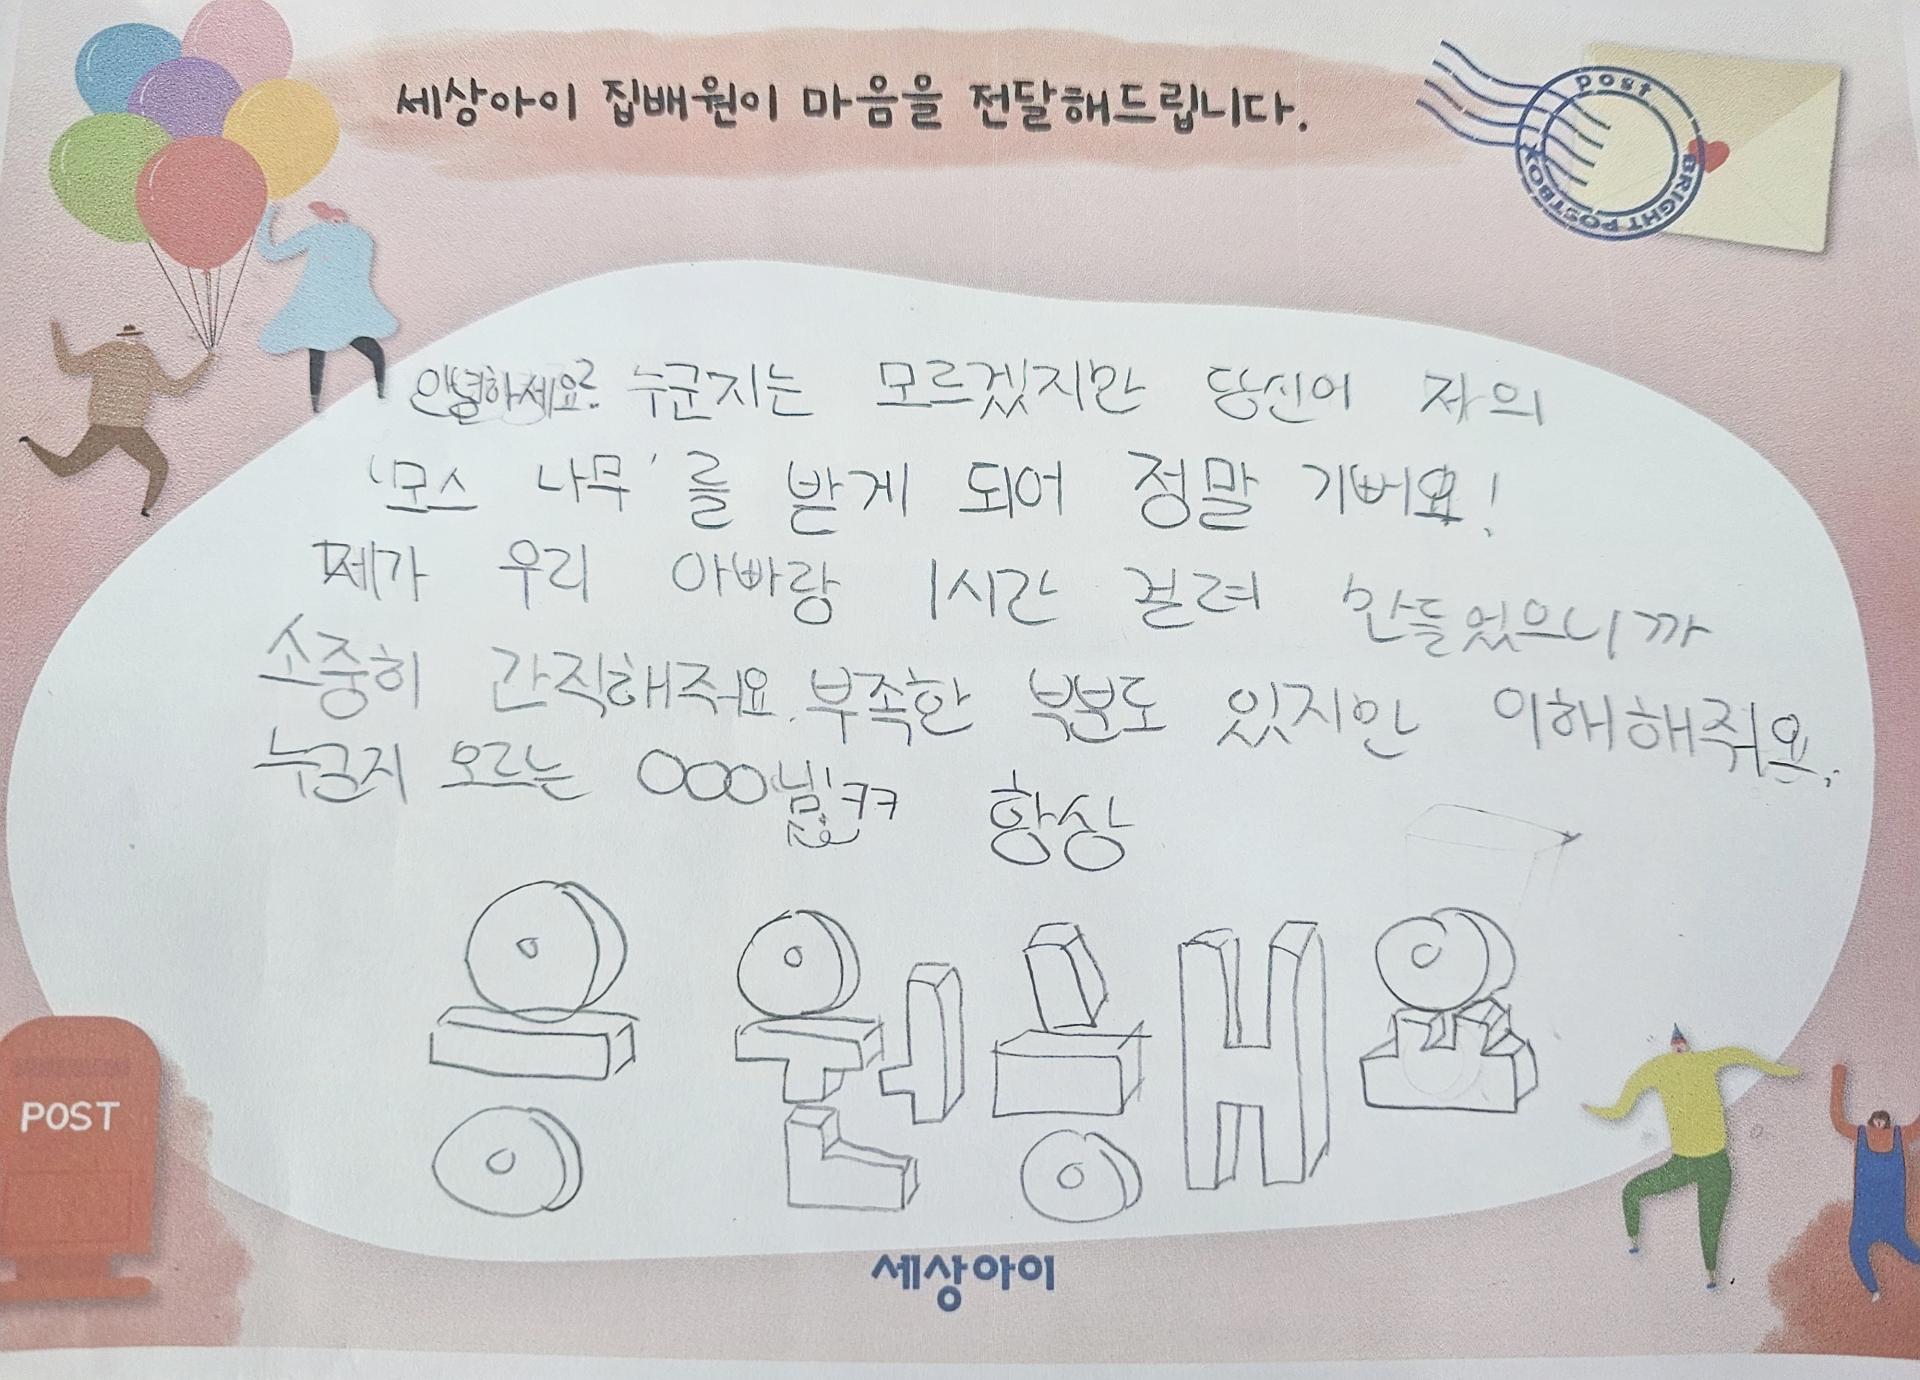 세상아이 집배원이 마음을 전달해드립니다.
post
BRIGHT POSTBOX
안녕하세요? 누군지는 모르겠지만 당신이 저의
'모스 나무'를 받게 되어 정말 기뻐요!
제가 우리 아빠랑 1시간 걸려 만들었으니까
소중히 간직해줘요. 부족한 부분도 있지만 이해해줘요.
누군지 모르는 OOO님 ㅋㅋ 항상
응원해요
POST
세상아이